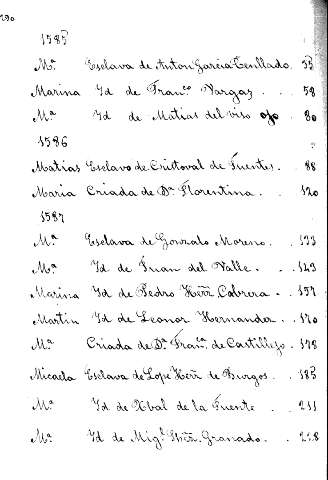 1585
Mª Esclava de Anton Garcia Tenllado. 55
Marina Id de Franco Vargas . . 58
Mª Id de Matias del viso ojo . 80
1586
Matias Esclavo de Cristoval de Fuentes. . 88
Maria Criada de Dª Florentina . . 120
1587
Mª Esclava de Gonzalo Moreno. . 133
Mª Id de Juan del Valle . . 143
Marina Id de Pedro Herz Cabrera . . 157
Martin Id de Leonor Hernandez . . 170
Mª Criada de Dª Franca de Castillejo . 178
Micaela Esclava de Lope Herz de Burgos . . 185
Mª Id de Xbal de la Fuente . . 211
Mª Id de Migl Granado. . . 228